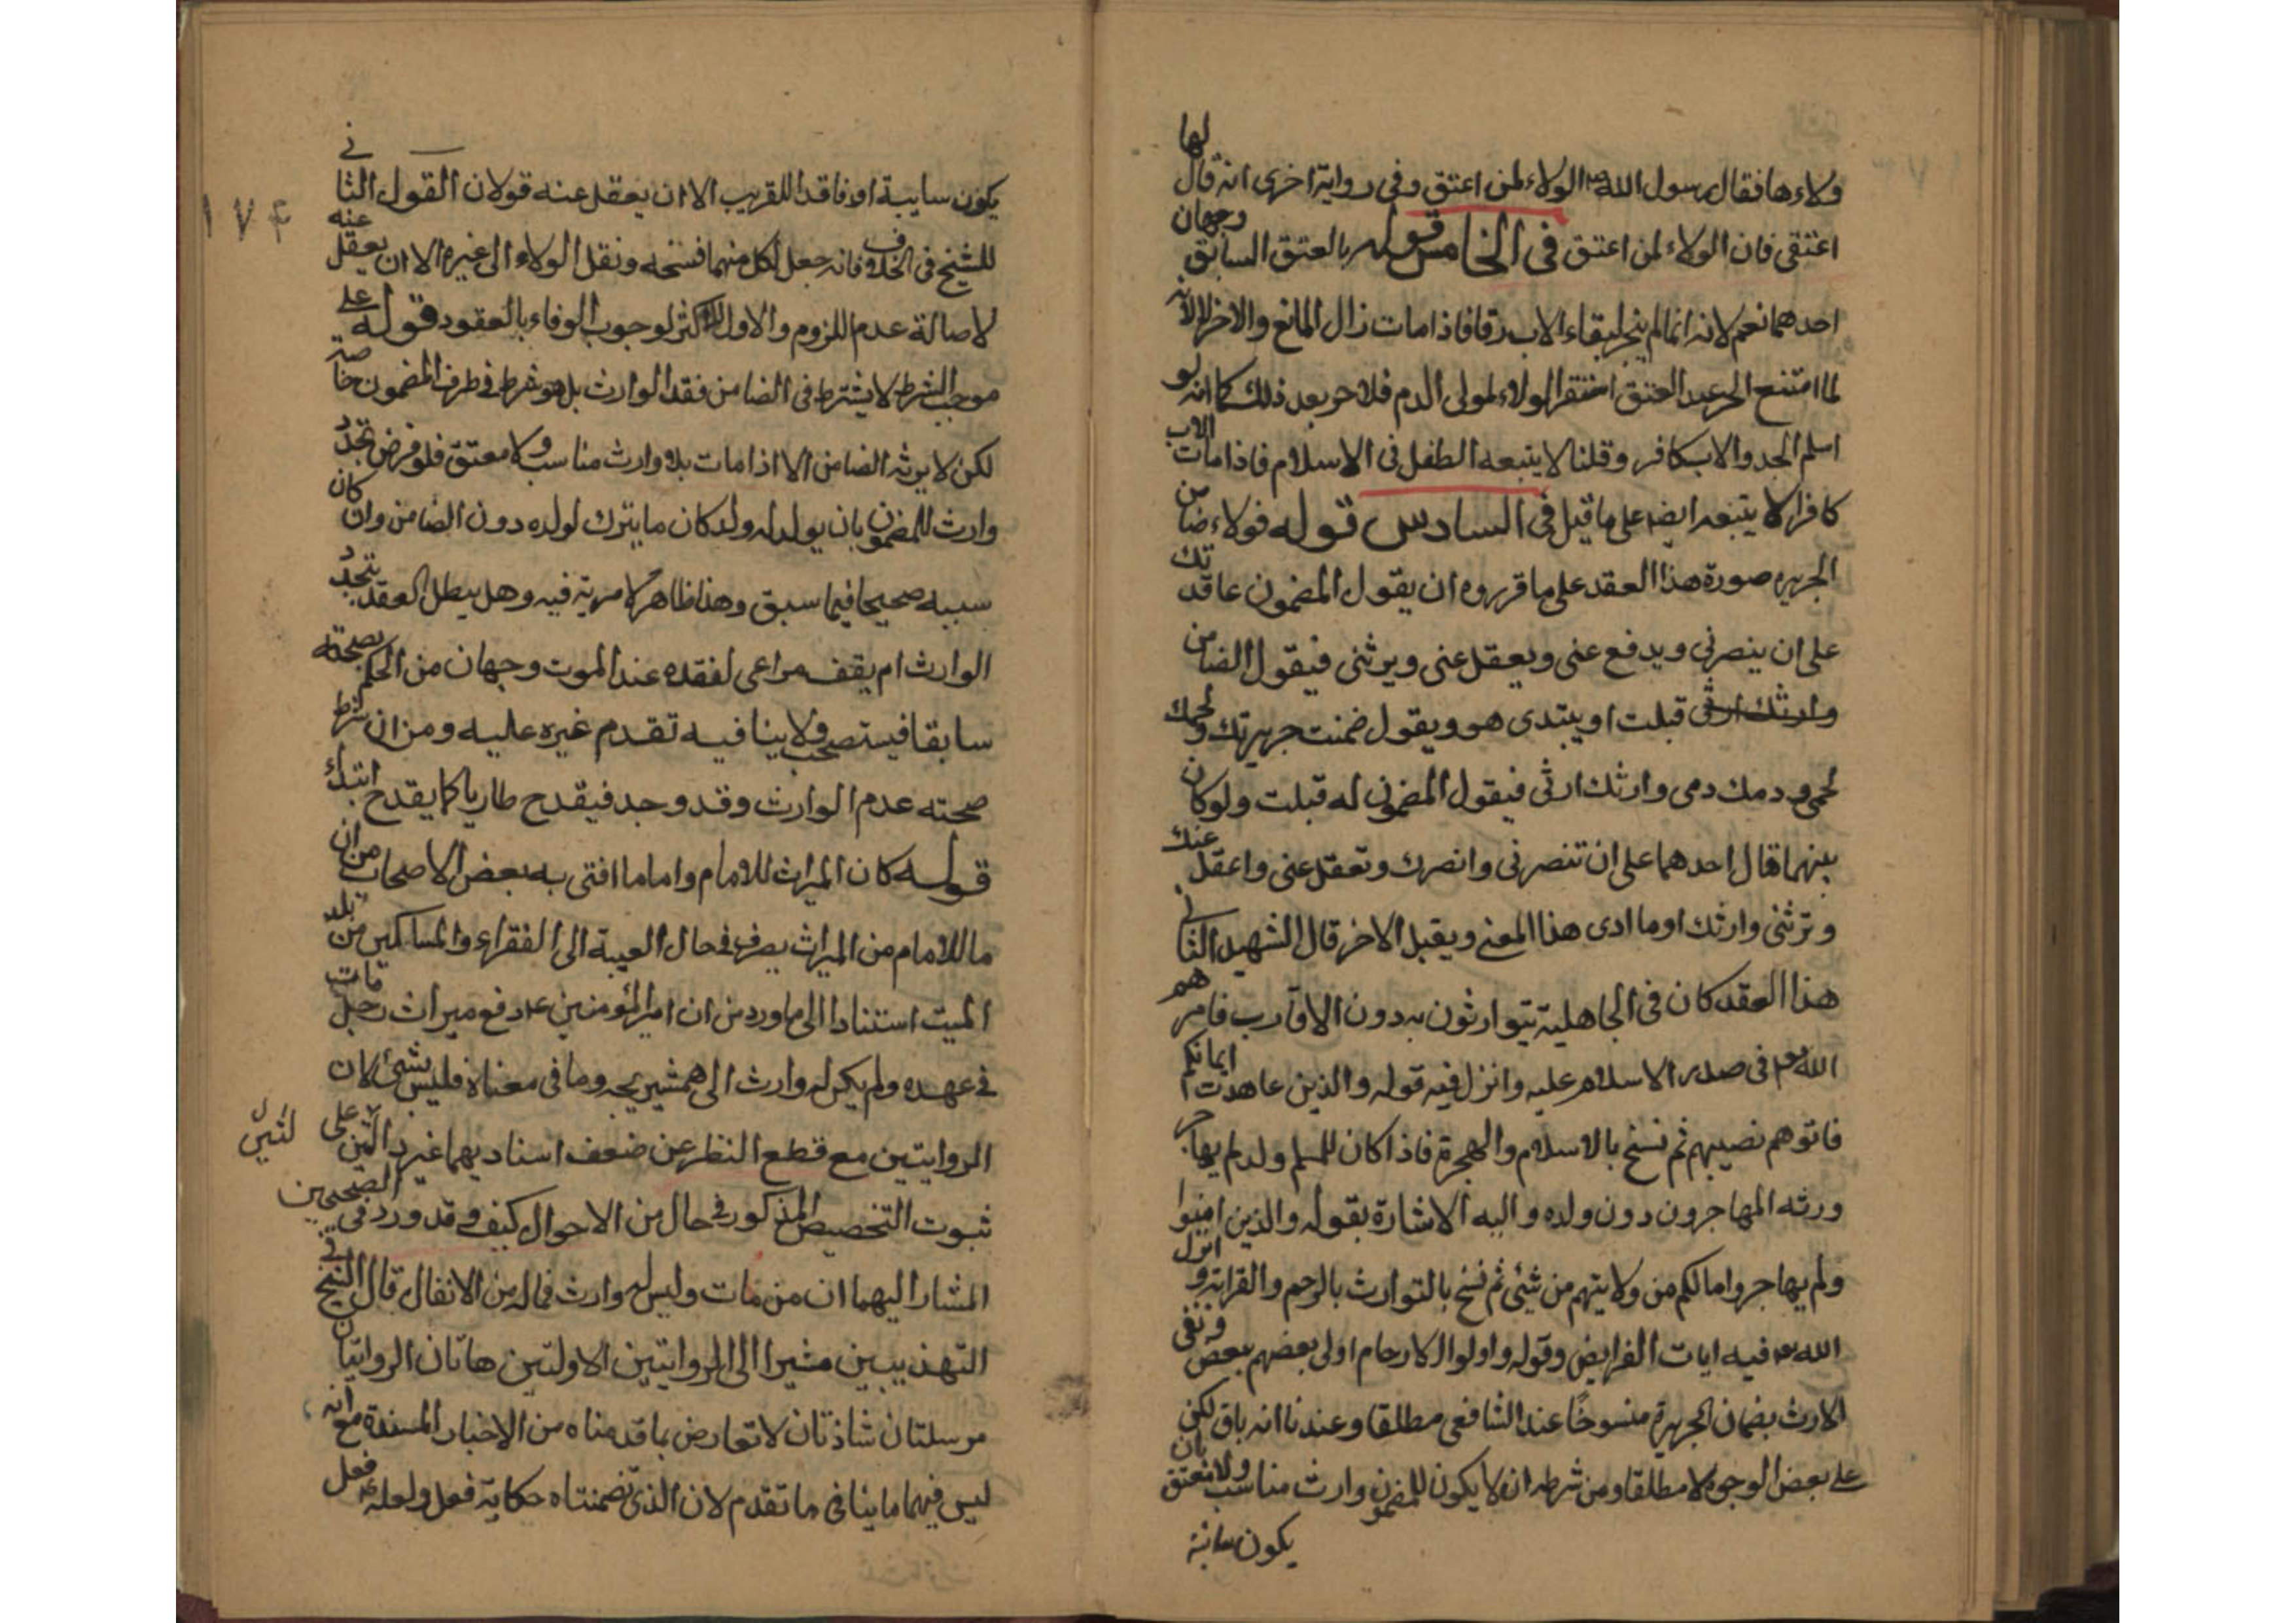 ولاءها فقال رسول الله ص الولاء لمن اعتق وفي رواية اخرى انه قال لها
اعتقى فان الولاء لمن اعتق في الخامس قوله بالعتق السابق وجهان
احدهما نعم لانه انما لم ينجر لبقاء الاب رقا فاذا مات زال المانع والاخر لا لانه
لما امتنع الجر عند العتق استقر الولاء لمولى الدم فلا جر بعد ذلك كما انه لو
اسلم الجد والاب كافر وقلنا لا يتبعه الطفل في الاسلام فاذا مات الاب
كافرا لا يتبعه ايضا على ما قيل في السادس قوله فولاء ضامن
الجريره صورة هذا العقد على ما قرروه ان يقول المضمون عاقدتك
على ان ينصرني ويدفع عني ويعقل عني ويرثني فيقول الضامن
قبلت او يبتدى هو ويقول ضمنت جريرتك ولحمك
لحمي ودمك دمي وارثك ارثى فيقول المضمون له قبلت ولو كان
بينهما قال احدهما على ان تنصرني وانصرك وتعقل عني واعقل عنك
وترثني وارثك او ما ادى هذا المعنى ويقبل الاخر قال الشهيد الثاني
هذا العقد كان في الجاهلية يتوارثون به دون الاقارب فامرهم
الله تعه في صدر الاسلام عليه وانزل فيه قوله والذين عاهدت ايمانكم
فاتوهم نصيبهم ثم نسخ بالاسلام والهجرة فاذا كان للمسلم ولد لم يهاجر
ورثه المهاجرون دون ولده واليه الاشارة بقوله والذين امنوا
ولم يهاجروا مالكم من ولايتهم من شئ ثم نسخ بالتوارث بالرحم والقرابة وانزل
الله تعه فيه ايات الفرايض وقوله واولوا الارحام اولى بعضهم ببعض وبقى
الارث بضمان الجريرة منسوخا عند الشافعي مطلقا وعندنا انه باق لكن
على بعض الوجوه لا مطلقا ومن شرطه ان لا يكون للمضمون وارث مناسب ولا معتق بان
يكون سائبة
١٧۴
يكون سايبة او فاقدا للقريب الا ان يعقل عنه قولان القول الثاني
للشيخ في الخلاف فانه جعل لكل منهما فسخه ونقل الولاء الى غيره الا ان يعقل عنه
لاصالة عدم اللزوم والاول للاكثر لوجوب الوفاء بالعقود قوله على
موجب الشرط لا يشترط في الضامن فقد الوارث بل هو شرط في طرف المضمون خاصة
لكن لا يرثه الضامن الا اذا مات بلا وارث مناسب ولا معتق فلو فرض تجدد
وارث للمضمون بان يولد له ولد كان ما يترك لولده دون الضامن وان كان
سببه صحيحا فيما سبق وهذا ظاهر لا مرية فيه وهل يبطل العقد بتجدد
الوارث ام يقف مراعى لفقده عند الموت وجهان من الحكم بصحته
سابقا فيستصحب ولا ينافيه تقدم غيره عليه ومن ان شرط
صحته عدم الوارث وقد وجد فيقدح طاريا كما يقدح ابتداء
قوله كان الميراث للامام واما ما افتى به بعض الاصحاب من ان
ما للامام من الميراث يصرف في حال الغيبة الى الفقراء والمساكين من بلد
الميت استنادا الى ما ورد من ان امير المؤمنين ع دفع ميراث رجل مات
في عهده ولم يكن له وارث الى همشيريجه وما في معناه فليس بشئ لان
الروايتين مع قطع النظر عن ضعف اسناديهما غير دالتين على
ثبوت التخصيص المذكور في حال من الاحوال كيف وقد ورد في الصحيحين
المشار اليهما ان من مات وليس له وارث فماله من الانفال قال الشيخ في
التهذيبين مشيرا الى الروايتين الاولتين هاتان الروايتان
مرسلتان شاذتان لا تعارض بما قدمناه من الاخبار المسندة مع انه
ليس فيهما ما ينافي ما تقدم لان الذي تضمنتاه حكاية فعل ولعله ع فعل